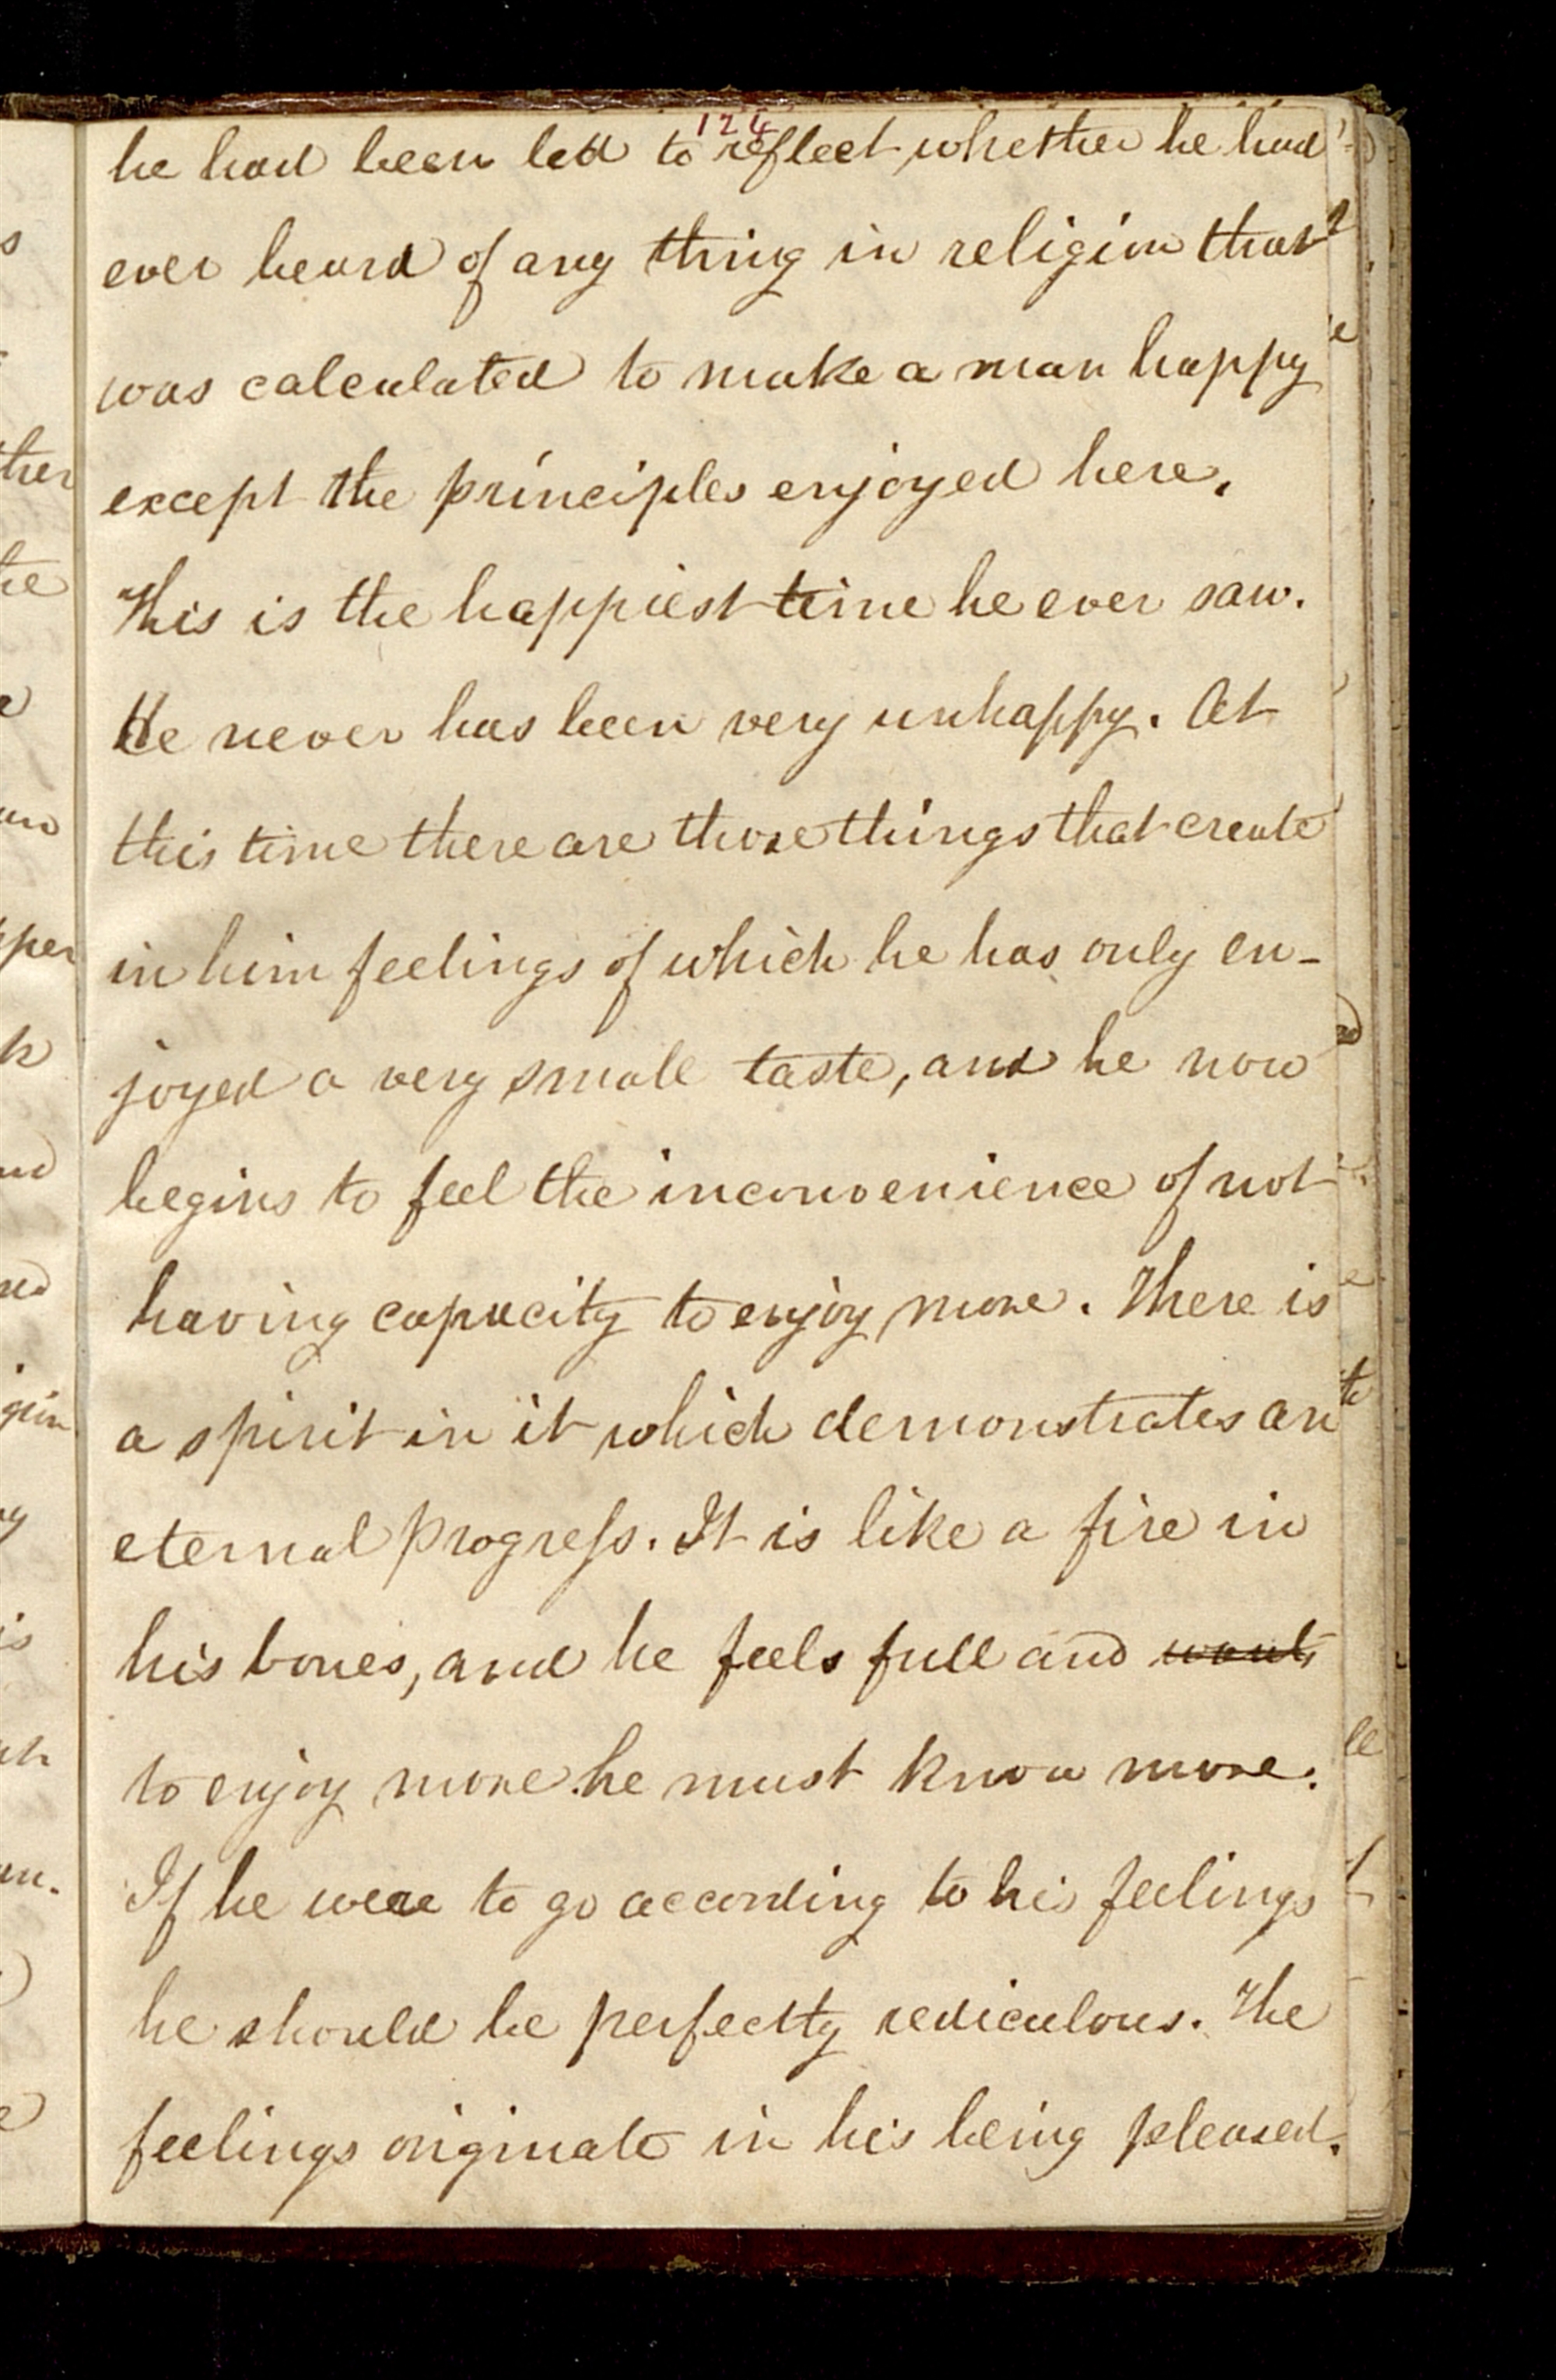 124
he had been led to reflect whether he had
ever heard of any thing in religion that
was calculated to make a man happy
except the principles enjoyed here.
This is the happiest time he ever saw.
He never has been very unhappy. At
this time there are those things that create
in him feelings of which he has only en-
joyed a very small taste, and he now
begins to feel the inconvenience of not
having capacity to enjoy more. There is
a spirit in it which demonstrates an
eternal progress. It is like a fire in
his bones, and he feels full and wants
to enjoy more he must know more.
If he were to go according to his feelings
he should be perfectly rediculous. The
feelings originate in his being pleased.